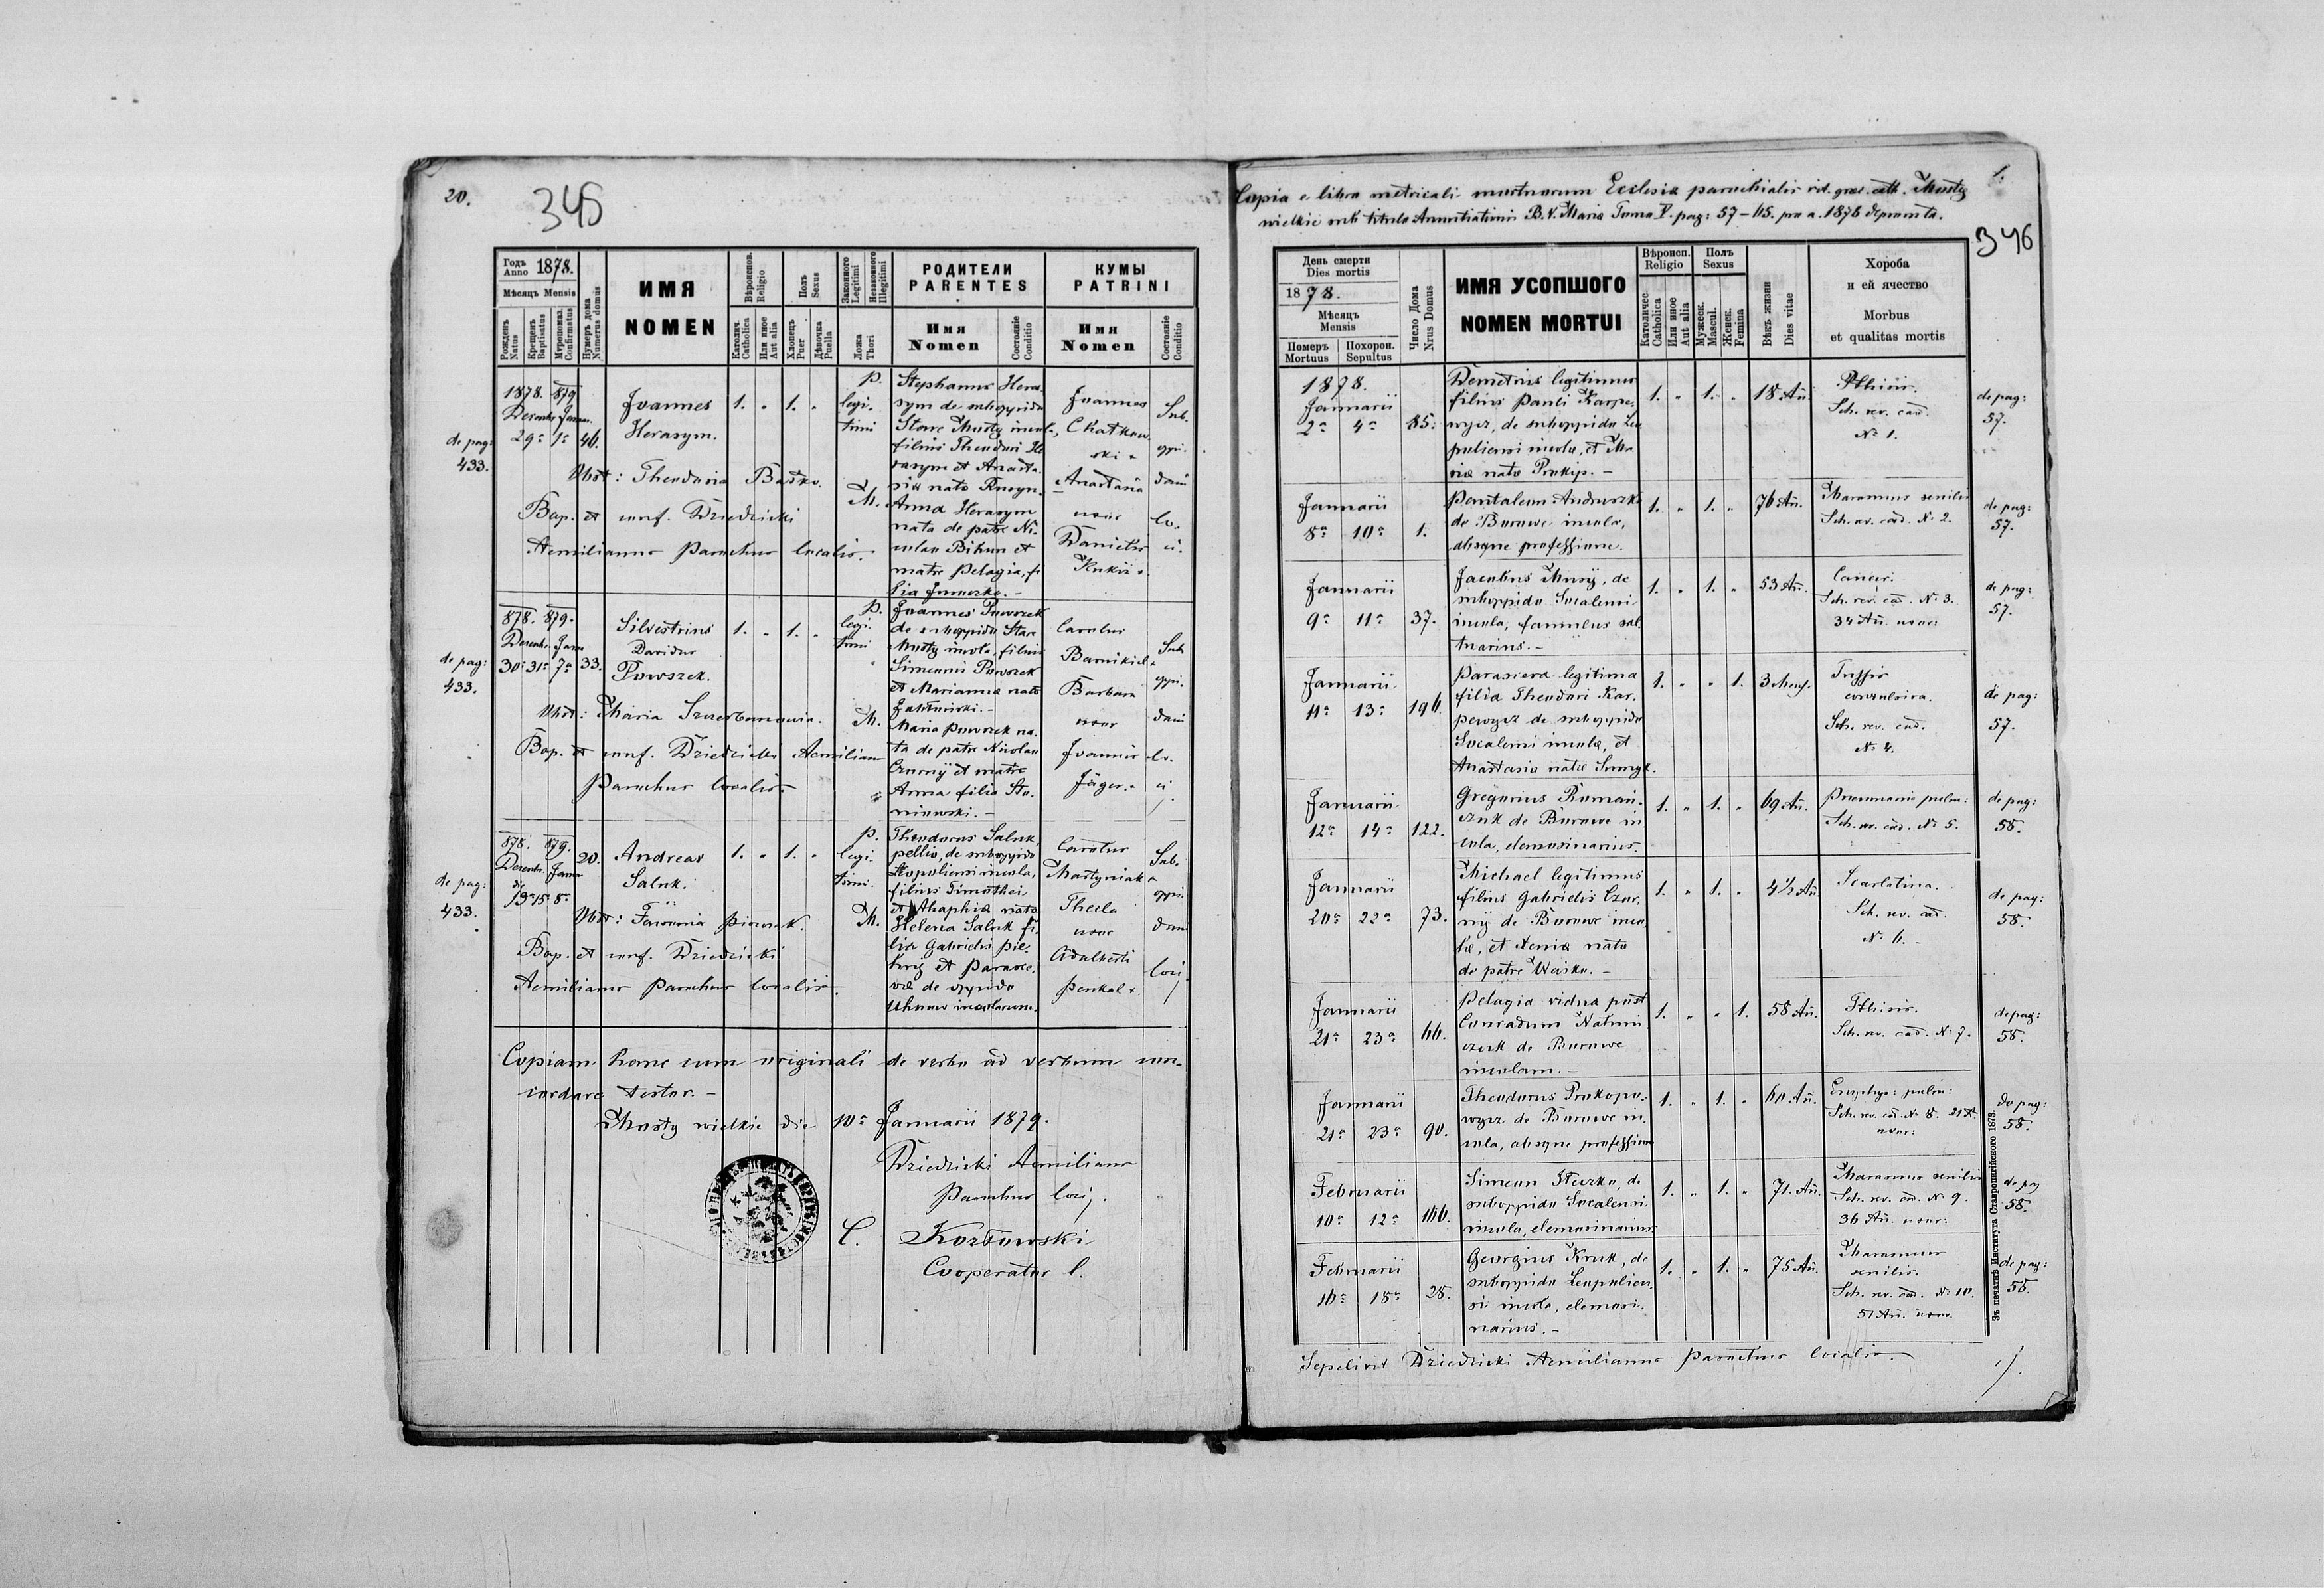 20.
345
Годъ
Anno 1878.
Мѣсяцъ Mensis
Рожденъ
Natus
Крещенъ
Baptisatus
Мѵропомаз.
Confirmatus
Нумеръ дома
Numerus domus
ИМЯ
NOMEN
Вѣроиспов.
Religio
Католич.
Catholica
Или иное
Aut alia
Полъ
Sexus
Хлопецъ
Puer
Дѣвочка
Puella
Законного
Legitimi
Незаконного
Illegitimi
Ложа
Thori
РОДИТЕЛИ
PARENTES
Имя
Nomen
Состояніе
Conditio
КУМЫ
PATRINI
Имя
Nomen
Состояніе
Conditio
de pag:
433.
1878. 879
Decembr. Januar.
29a 1a 46.
Joannes
Herasym.
1. " 1. "
P.
legi-
timi
M.
Obst: Theodosia Baśko.
Bap. et conf. Dziedzicki
Aemilianus Parochus localis.
Stephanus Hera-
sym de suboppido
Stare Mosty incola,
filius Theodori He-
rasym et Anasta-
siæ nata Rusyn.
Anna Herasym
nata de patre Ni-
colao Bihun et
matre Pelagia, fi-
lia
Joannes
Chatkow-
ski +
Anastasia
uxor
Danielis
Kukiz +.
Sub-
oppi-
dani
lo-
ci.
de pag:
433.
878. 879.
Decembr. Janu
30a 31a 7a 33.
Silvestrius
Davidus
Powszek.
1. " 1. "
P.
legi-
timi
M.
Obst: Maria Szczerbanowicz.
Bap. et conf. Dziedzicki Aemilian
Parochus localis.
Joannes Powszek
de suboppido Stare
Mosty incola, filius
Simeonis Powszek
et Mariannæ nata
Maria Powszek na-
ta de patre Nicolao
Czornij et matre
Anna filia Sta-
niowski. -
Carolus
Barnikiel +
Barbara
uxor
Joannis
Jäger. +
Sub
oppi-
dani
lo-
ci
de pag:
433.
878. 879.
Decembr. Janu
13a 15a 8a
20.
Andreas
Saluk.
1. " 1. "
P.
legi-
timi.
M.
Obst: Fevronia Piwnuk.
Bap. et conf. Dziedzicki
Aemilianus Parochus localis.
Theodorus Saluk,
pellio, de suboppido
Leopoliensi incola,
filius Timothei
et Ahaphiæ nata
Helena Saluk fi-
lia Gabrielis Pie-
et Parasce-
væ de oppido
Uhnow incolarum.
Carolus
Martyniak +
Thecla
uxor
Adalberti
Penkal +.
Sub-
oppi-
dani
loci
Copiam hanc cum originali de verbo ad verbum con-
cordare testor. -
Mosty wielkie die 10a Januarii 1879.
Dziedzicki Aemilianus
Parochus loci.
C. Kozłowski
Cooperator l.
1.
Copia e libro metricali mortuorum Ecclesiæ parochialis rit. græc. cath. Mosty
wielkie sub titulo Anuntiationis B. V. Mariæ Tomo V. pag: 57-65. pro a. 1878 deprompta.
346
День смерти
Dies mortis
1878.
Мѣсяцъ
Mensis
Померъ
Mortuus
Похорон.
Sepultus
Число Дома
Nrus Domus
ИМЯ УСОПШОГО
NOMEN MORTUI
Вѣроисп.
Religio
Католичес.
Catholica
Или иное
Aut alia
Полъ
Sexus
Мужеск.
Mascul.
Женск.
Femina
Вѣкъ жизни
Dies vitae
Хороба
и ей ячество
Morbus
et qualitas mortis
1878.
Januarii
2a 4a 85.
Demetrius legitimus
filius Pauli Karpe-
wycz, de suboppido Leo
poliensi incolæ, et Ma-
riæ natæ Prokip. -
1. " 1. " 18 Añ.
Pthisis.
Sch. rev. cad.
No 1.
de pag:
57.
Januarii
8a 10a 1.
Pantaleon Andruszko
de Borowe incola,
absque professione.
1. " 1. " 76 Añ.
Marasmus senilis
Sch. rev. cad. No 2.
de pag:
57.
Januarii
9a 11a 37.
Jacobus Musij, de
suboppido Socalensi
incola, famulus sal-
tuarius. -
1. " 1. " 53 Añ.
Cancer.
Sch. rev. cad. No 3.
34 Añ. uxor:
de pag:
57.
Januarii
11a 13a 196.
Parasceva legitima
filia Theodori Kar-
pewycz de suboppido
Socalensi incolæ, et
Anastasiæ natæ
1. " " 1. 3 Mens.
Tussis
convulsiva.
Sch. rev. cad.
No 4.
de pag:
57.
Januarii
12a 14a 122.
Gregorius Romań-
czuk de Borowe in-
cola, elemosinarius.
1. " 1. " 69 Añ.
Pneumonia pulm:
Sch. rev. cad. No 5.
de pag:
58.
Januarii
20a 22a 73.
Michael legitimus
filius Gabrielis Czor-
nij de Borowe inco-
læ, et Xeniæ nata
de patre Waśko. -
1. " 1. " 4½ Añ
Scarlatina.
Sch. rev. cad.
No 6. -
de pag:
58.
Januarii
21a 23a 66.
Pelagia vidua post
Conradum
czuk de Borowe
incolam. -
1. " " 1. 58 Añ.
Pthisis.
Sch. rev. cad. No 7.
de pag:
58.
Januarii
21a 23a 90.
Theodorus Prokopo-
wycz de Borowe in-
cola, absque professione
1. " 1. " 60 Añ.
Emphys: pulm:
Sch. rev. cad. No 8. 21 A.
uxor:
de pag:
58.
Februarii
10a 12a 166.
Simeon Steczko, de
suboppido Socalensi
incola, elemosinarius
1. " 1. " 71. Añ.
Marasmus senilis
Sch. rev. cad. No 9.
36 Añ. uxor:
de pag
58.
Februarii
16a 18a 28.
Georgius Kruk, de
suboppido Leopolien-
si incola, elemosi-
narius. -
1. " 1. " 75 Añ.
Marasmus
senilis.
Sch. rev. cad. No 10.
51 Añ. uxor.
de pag:
58.
Sepelivit Dziedzicki Aemilianus Parochus localis.
Зъ печатнѣ Института Ставропигійского 1873.